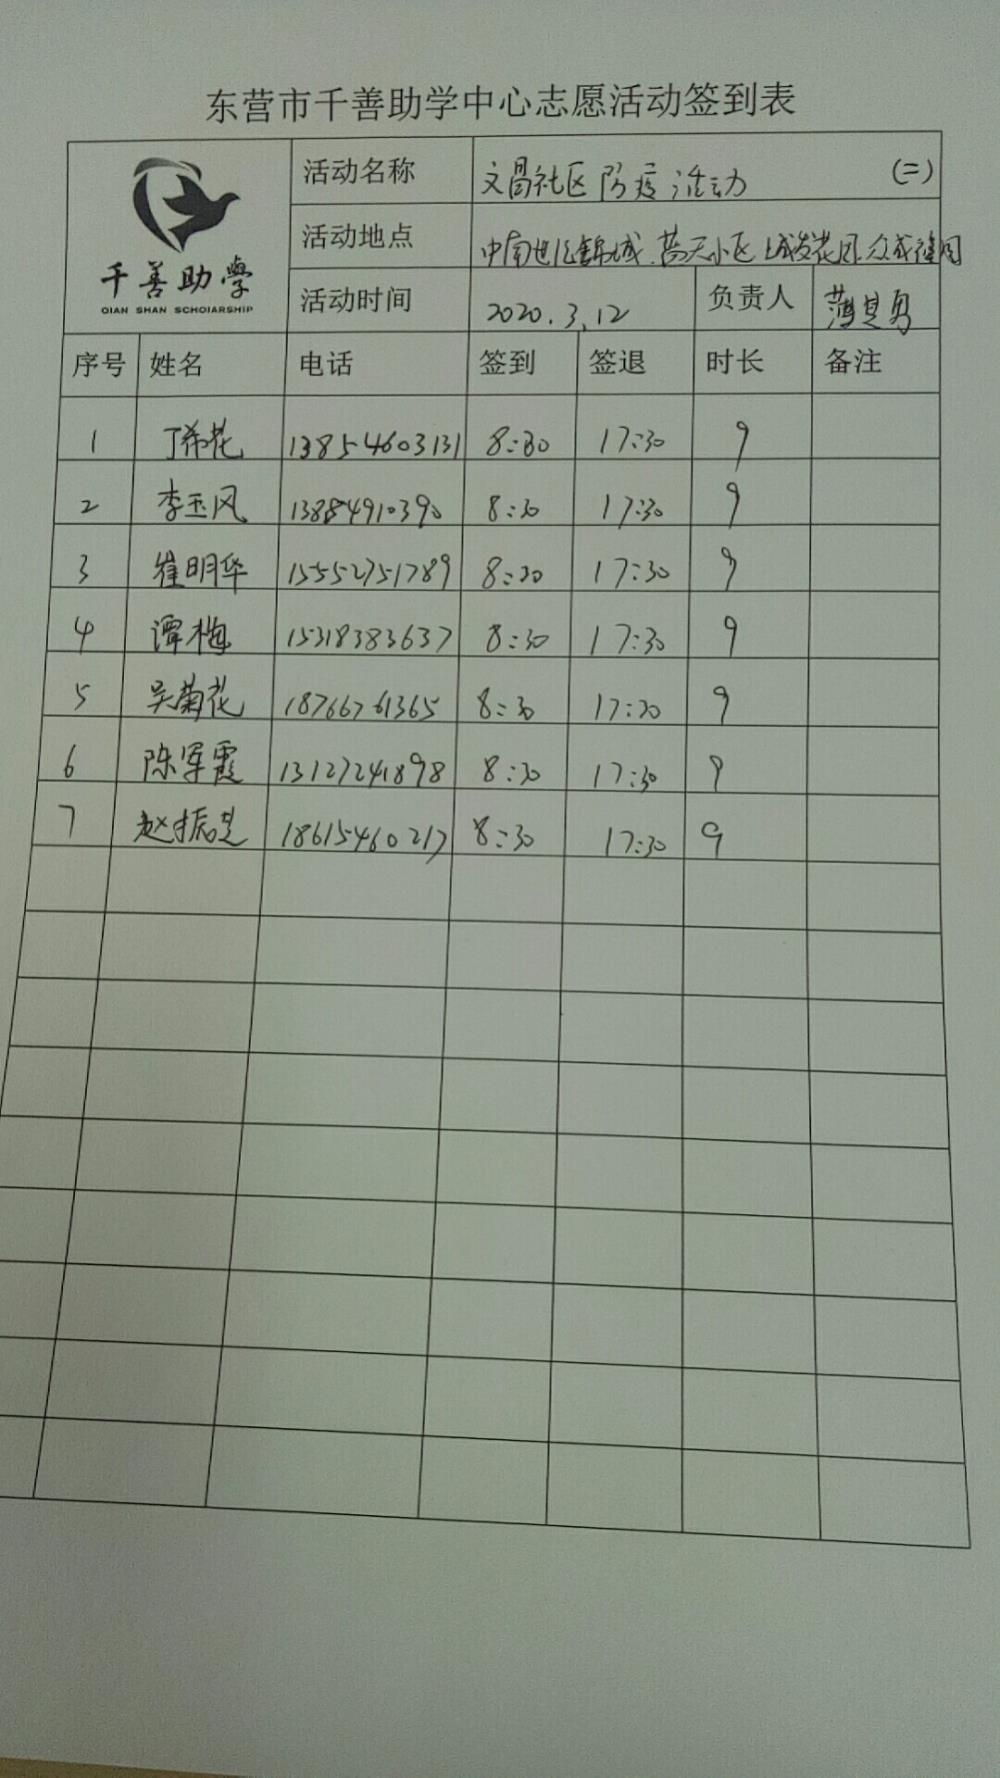 东营市千善助学中心志愿活动签到表
千善助學
QIAN SHAN SCHOIARSHIP
活动名称 文昌社区防疫活动 (二)
活动地点 中南世纪锦城.蓝天小区 城发花园.众成佳园
活动时间 2020.3.12 负责人 薄其勇
序号 姓名 电话 签到 签退 时长 备注
1 丁希花 13854603131 8:30 17:30 9
2 李玉风 13884910390 8:30 17:30 9
3 崔明华 15552751789 8:30 17:30 9
4 谭梅 15318383637 8:30 17:30 9
5 吴菊花 18766761365 8:30 17:30 9
6 陈军霞 13127241898 8:30 17:30 9
7 赵振芝 18615460217 8:30 17:30 9